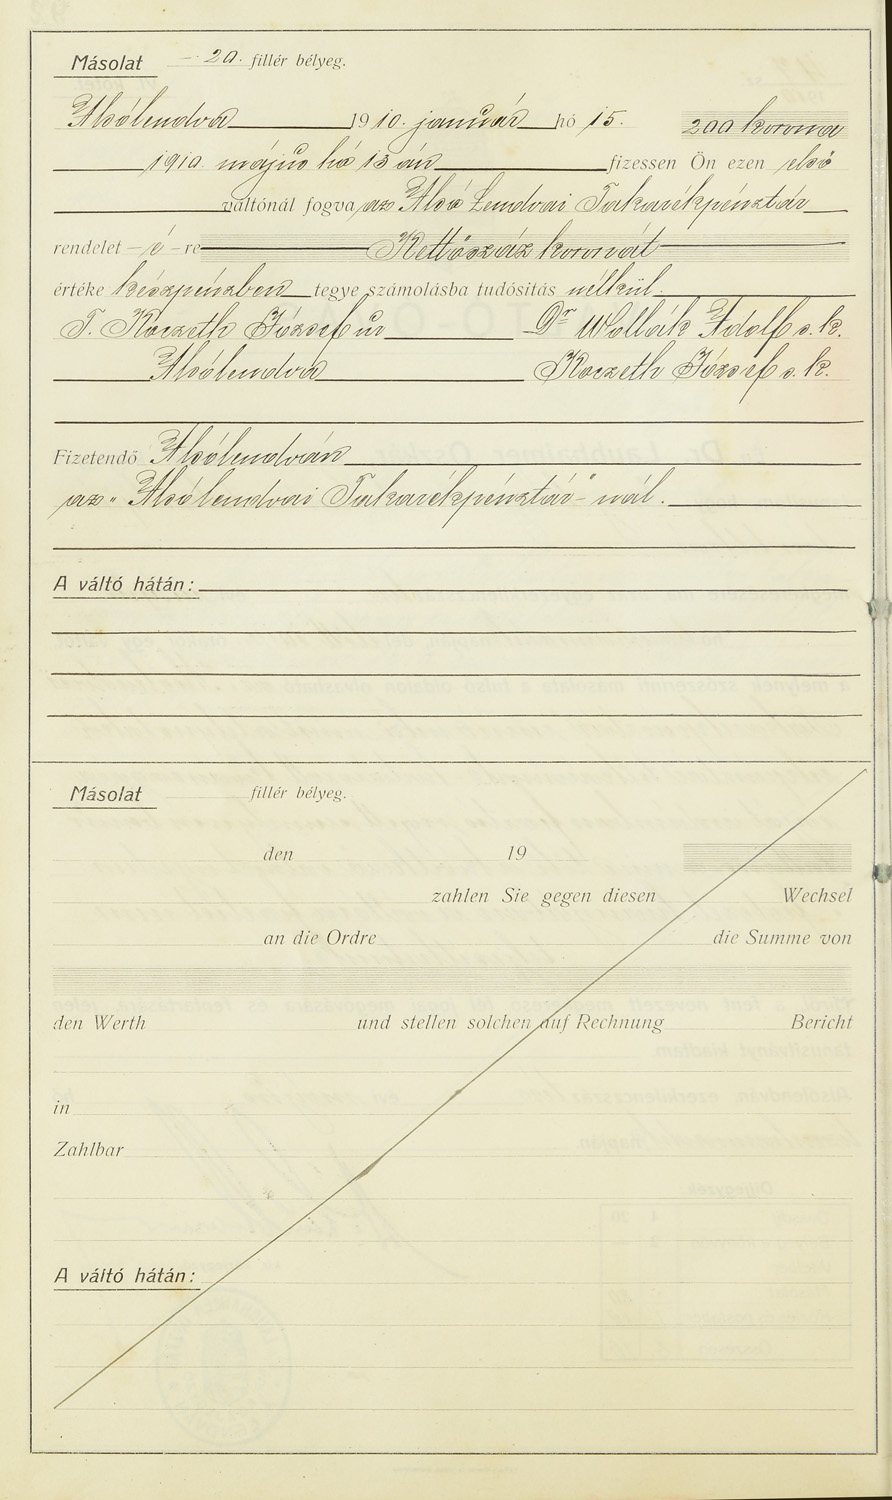 Másolat - 20. fillér bélyeg.
Alsólendva 1910. január hó 15. 200 korona
1910 május hó 13 án fizessen Ön ezen első
váltónál fogva az Alsó Lendvai Takarékpénztár
rendelet - é - re Kettőszáz koronát
értéke készpénzben tegye számolásba tudósítás nélkül.
T. Koczeth József úr Dr Wollák Adolf s. k.
Alsólendva Koczeth József s. k.
Fizetendő Alsólendván
az „Alsólendvai Takarékpénztár-" nál.
A váltó hátán:
Másolat fillér bélyeg.
den 19
zahlen Sie gegen diesen Wechsel
an die Ordre die Summe von
den Werth und stellen solchen auf Rechnung Bericht
in
Zahlbar
A váltó hátán: